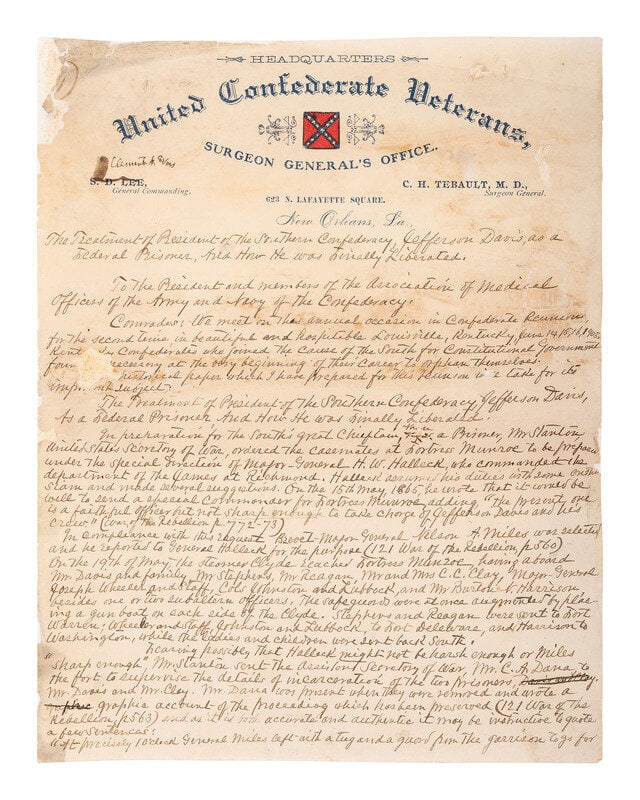 HEADQUARTERS
United Confederate Veterans,
SURGEON GENERAL'S OFFICE.
Clement A Evans
S. D. LEE,
General Commanding.
C. H. TEBAULT, M. D.,
Surgeon General.
623 N. LAFAYETTE SQUARE.
New Orleans, La.,
The Treatment of President of the Southern Confederacy, Jefferson Davis, as a
Federal Prisoner, And How He was Finally Liberated.
To the President and members of the Association of Medical
Officers of the Army and Navy of the Confederacy.
Comrades: We meet on this annual occasion in Confederate Reunion,
for the second time in beautiful and hospitable Louisville, Kentucky, June 14, 15, 16, 1905.
Confederates who joined the cause of the South for Constitutional Government
at the very beginning of their career to orphan themselves.
historical paper which I have prepared for this reunion we take for its
important subject:
The Treatment of President of the Southern Confederacy Jefferson Davis,
As a Federal Prisoner And How He was Finally Liberated:
In preparation for the South's great Chieftain, a Prisoner, Mr Stanton
United States Secretary of War, ordered the casemates at Fortress Munroe to be prepared
under the special direction of Major-General H. W. Halleck, who commanded the
department of the James at Richmond. Halleck assumed his duties with some enthu-
siasm and made several suggestions. On the 15th May, 1865, he wrote that it would be
well to send a special commander for Fortress Munroe, adding "The present one
is a faithful officer but not sharp enough to take charge of Jefferson Davis and his
crew" (War of the Rebellion p. 772-73)
In compliance with this request Brevet-Major General Nelson A Miles was selected
and he reported to General Halleck for the purpose (121 War of the Rebellion, p 560)
On the 19th of May, the steamer Clyde reached Fortress Munroe, having aboard
Mr. Davis and family, Mr Stephens, Mr Reagan, Mr and Mrs C. C. Clay, Major General
Joseph Wheeler and Staff, Cols Johnston and Lubbock, and Mr Burton N. Harrison
besides one or two subaltern officers. The safeguard were at once augmented by plac-
ing a gun boat on each side of the Clyde. Stephens and Reagan were sent to Fort
Warren, Wheeler and staff, Johnston and Lubbock, to Fort Delaware, and Harrison to
Washington, while the ladies and children were sent back South.
Fearing possibly that Halleck might not be harsh enough or Miles
"sharp enough" Mr. Stanton sent the assistant Secretary of War, Mr. C. A. Dana to
the fort to supervise the details of incarceration of the two prisoners,
Mr. Davis and Mr. Clay. Mr. Dana was present when they were removed and wrote a
graphic account of the proceeding which has been preserved (121 War of the
Rebellion, p 563) and as it is both accurate and authentic it may be instructive to quote
a few sentences:
"At precisely 1 o'clock General Miles left with a tug and a guard from the garrison to go for